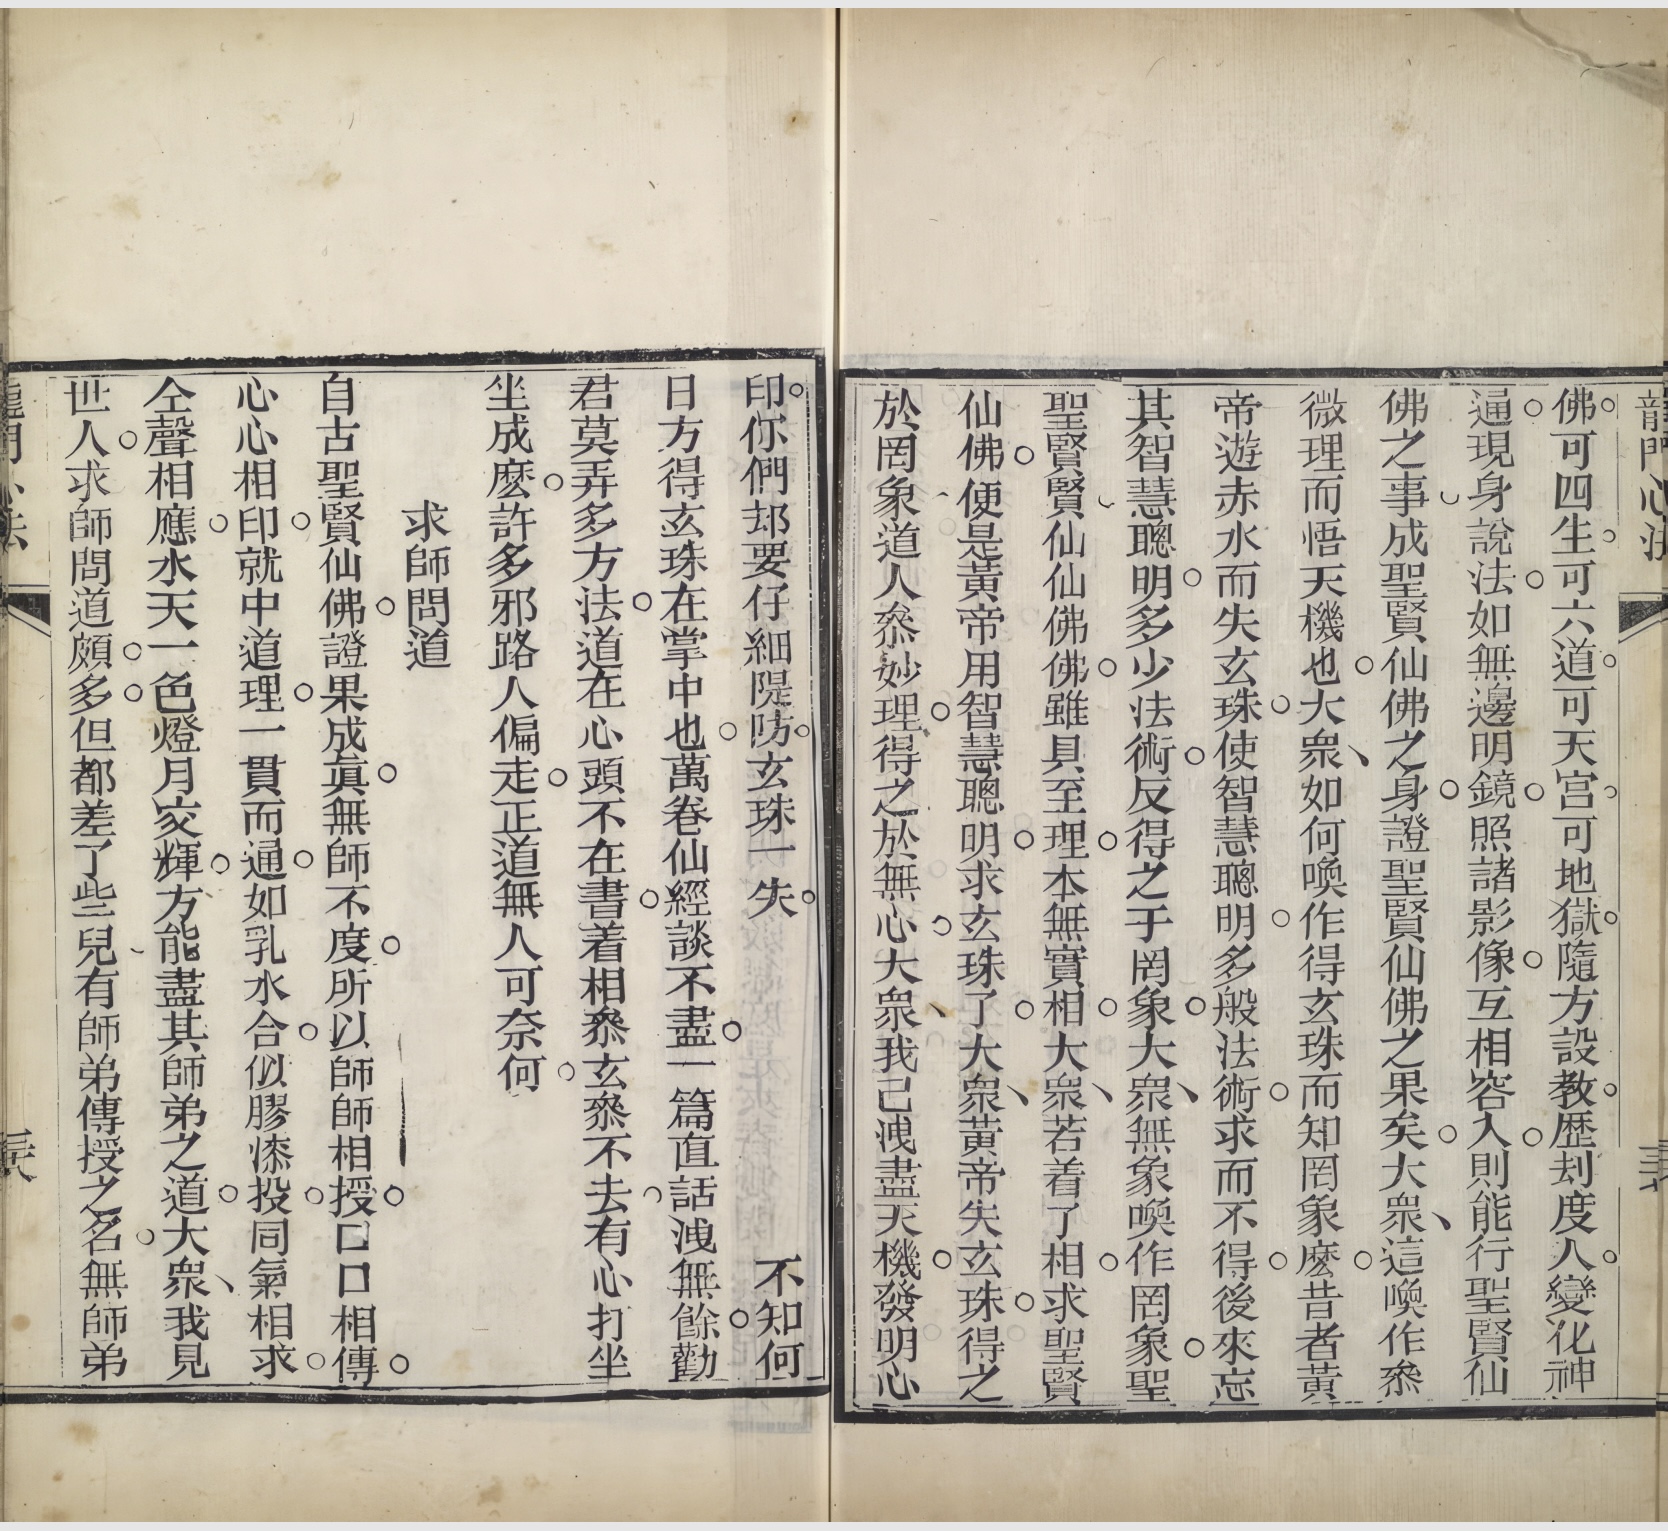 龍門心法
佛可四生可六道可天宮可地獄隨方設教歷刦度人變化神
通現身說法如無邊明鏡照諸影像互相容入則能行聖賢仙
佛之事成聖賢仙佛之身證聖賢仙佛之果矣大衆這喚作叅
微理而悟天機也大衆如何喚作得玄珠而知罔象麽昔者黃
帝遊赤水而失玄珠使智慧聰明多般法術求而不得後來忘
其智慧聰明多少法術反得之于罔象大衆無象喚作罔象聖
聖賢賢仙仙佛佛雖具至理本無實相大衆若着了相求聖賢
仙佛便是黃帝用智慧聰明求玄珠了大衆黃帝失玄珠得之
於罔象道人叅妙理得之於無心大衆我已洩盡天機發明心
印你們却要仔細隄防玄珠一失 不知何
日方得玄珠在掌中也萬卷仙經談不盡一篇直話洩無餘勸
君莫弄多方法道在心頭不在書着相叅玄叅不去有心打坐
坐成麽許多邪路人偏走正道無人可奈何
求師問道
自古聖賢仙佛證果成眞無師不度所以師師相授口口相傳
心心相印就中道理一貫而通如乳水合似膠漆投同氣相求
仝聲相應水天一色燈月交輝方能盡其師弟之道大衆我見
世人求師問道頗多但都差了些兒有師弟傳授之名無師弟